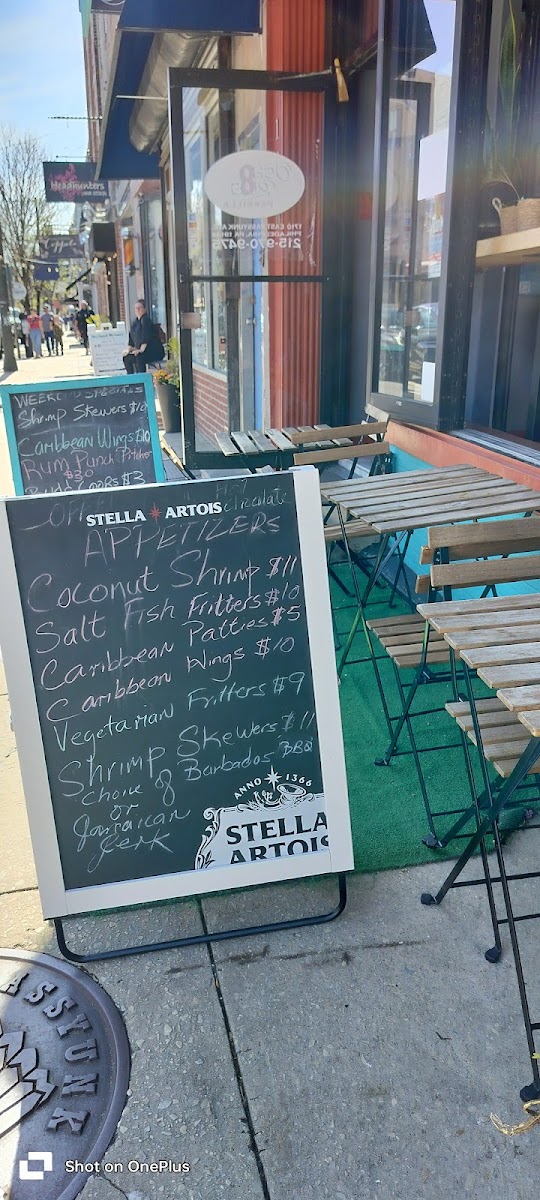 Headhunters
1710 EAST PASSYUNK AVE
PHILADELPHIA, PA
215-970-9475
WEEKEND SPECIALS
Shrimp Skewers $10
Caribbean Wings $10
Rum Punch Pitcher
$30
$3
STELLA ARTOIS
APPETIZERS
Coconut Shrimp $11
Salt Fish Fritters $10
Caribbean Patties $5
Caribbean Wings $10
Vegetarian Fritters $9
Shrimp Skewers $11
Choice of Barbados BBQ
or
Jamaican
Jerk
ANNO 1366
STELLA
ARTOIS
ASSYUNK
Shot on OnePlus